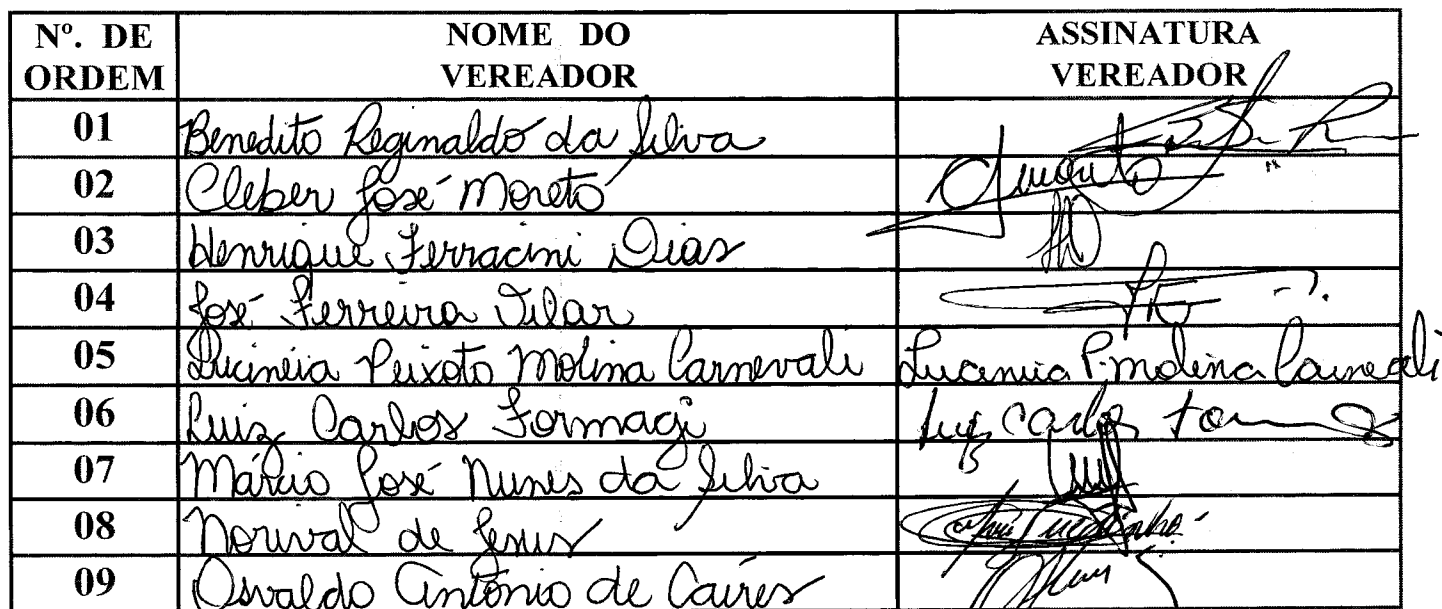 Nº. DE ORDEM NOME DO VEREADOR ASSINATURA VEREADOR
01 Benedito Reginaldo da Silva
02 Cleber José Moreto
03 Henrique Ferracini Dias
04 José Ferreira Vilar
05 Lucinéia Peixoto Molina Carnevali Lucineia P. Molina Carnevali
06 Luiz Carlos Formagi Luiz Carlos
07 Márcio José Nunes da Silva
08 Norival de Jesus
09 Osvaldo Antônio de Caires